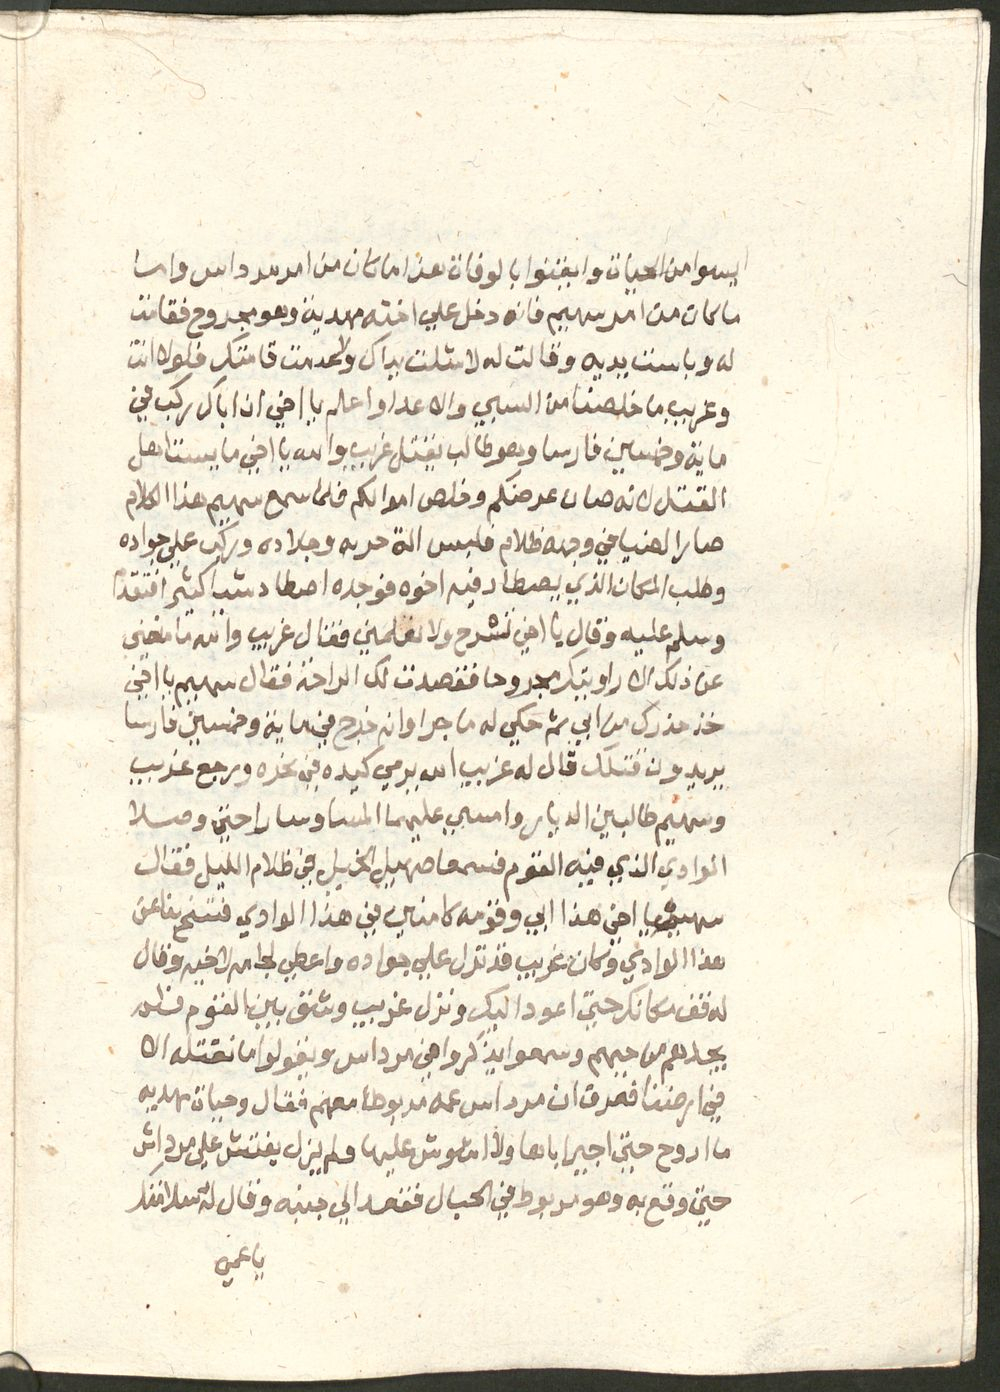 ايسوا من الحيات وايقنوا بالوفات هذا ماكان من امر مرداس واما
ماكان من امر سهيم فانه دخل علي اخته مهدية وهو مجروح فقامت
له وباست يديه وقالت له لا شلت يداك ولا عدمت قامتك فلولا انت
وغريب ما خلصنا من السبي والاعدا واعلم يا اخي ان اباك ركب في
ماية وخمسين فارسا وهو طالب يقتل غريب والله يا اخي ما يستاهل
القتل لانه صان عرضكم وخلص اموالكم فلما سمع سهيم هذا الكلام
صار الضيا في وجهه ظلام فلبس الة حربه وجلاده وركب علي جواده
وطلب المكان الذي يصطاد فيه اخوه فوجده اصطاد شيا كثير افتقدا
وسلم عليه وقال يا اخي تسرح ولا تعلمني فقال غريب والله ما منعني
عن ذلك الا رايتك مجروحا فقصدت لك الراحة فقال سهيم يا اخي
خذ حذرك من ابي ثم حكي له ما جرا وانه خرج في ماية وخمسين فارسا
يريدون قتلك قال له غريب الله يرمي كيده في نحره ورجع غريب
وسهيم طالبين الديار وامسي عليهما المسا وسارا حتي وصلا
الوادي الذي فيه القوم فسمعا صهيل الخيل في ظلام الليل فقال
سهيم يا اخي هذا ابي وقومه كامنين في هذا الوادي فتنح بنا عن
هذا الوادي وكان غريب قد نزل علي جواده واعطي لجامه لاخيه وقال
له قف مكانك حتي اعود اليك ونزل غريب وشق بين القوم فلم
يجدهم من حيهم وسمعوا يذكروا في مرداس ويقولوا ما نقتله الا
في ارضنا فعرف ان مرداس عمه مربوط معهم فقال وحيات مهديه
ما اروح حتي اجير اباها ولا اشوش عليها ولم يزل يفتش علي مرداس
حتي وقع به وهو مربوط في الحبال فقعد الي جنبه وقال له سلامتك
يا عمي